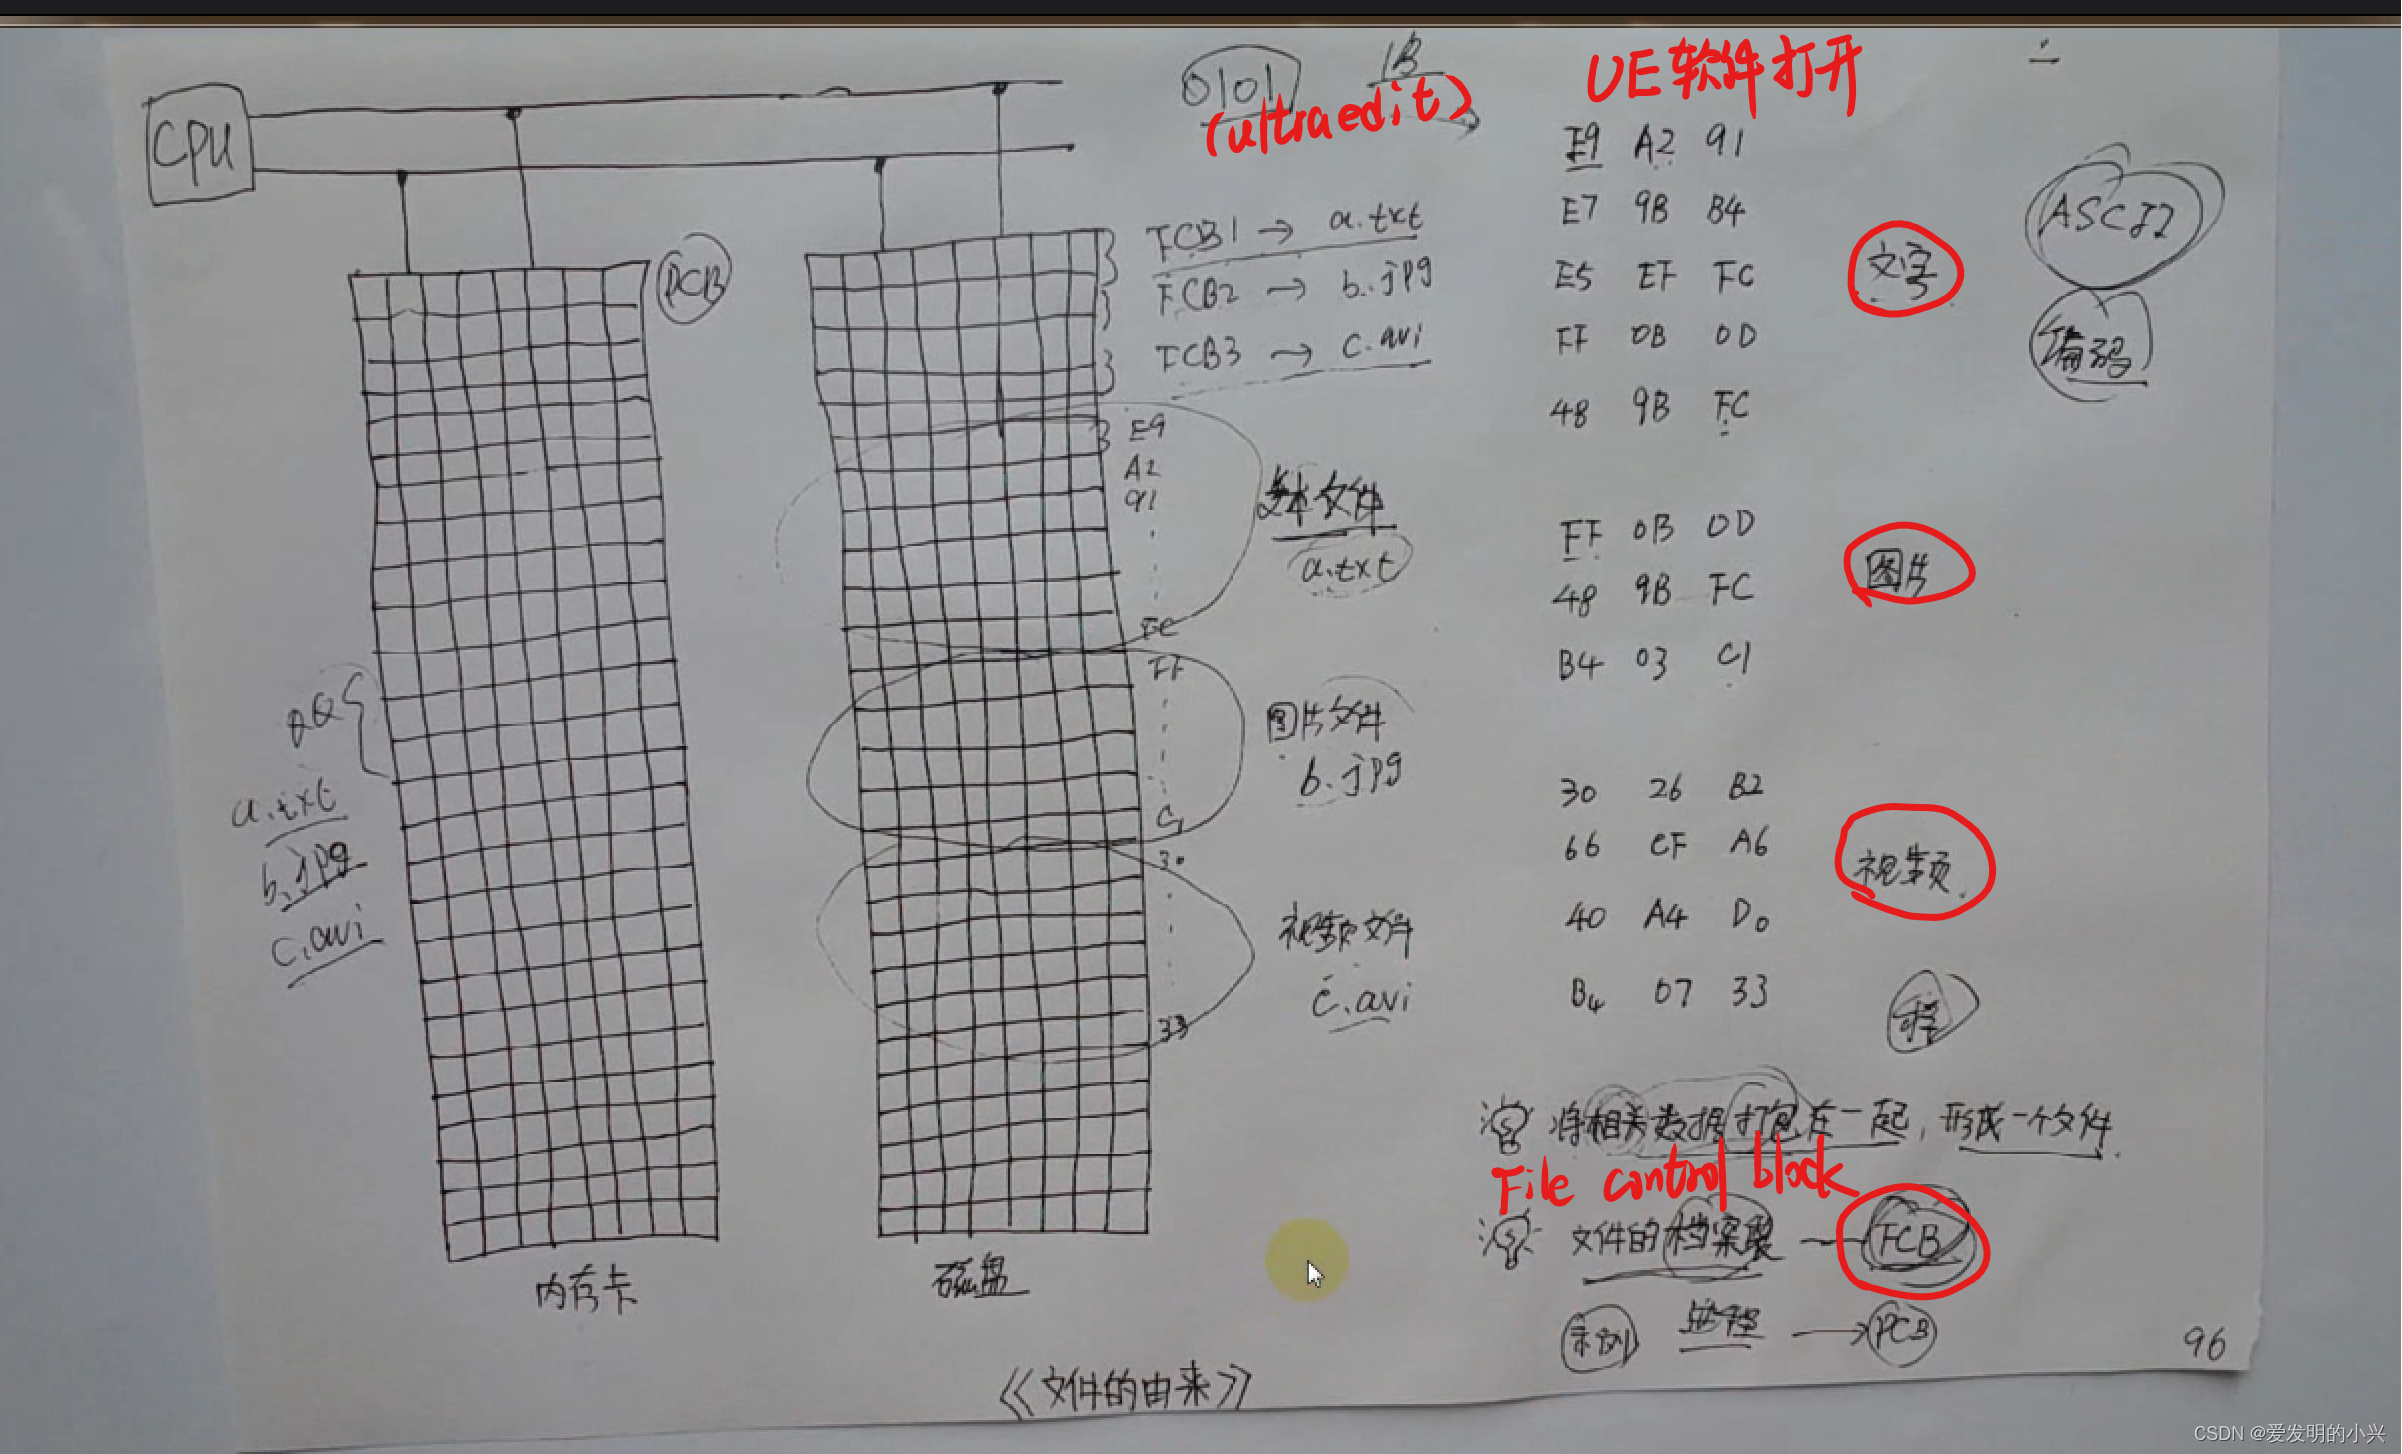 0101
1B
UE软件打开
(ultraedit)
CPU
E9 A2 91
E7 9B B4
E5 EF FC
FF 0B 0D
48 9B FC
文字
ASCII
编码
PCB
FCB1 → a.txt
FCB2 → b.jpg
FCB3 → c.avi
E9
A2
91
FC
文本文件
a.txt
FF 0B 0D
48 9B FC
B4 03 C1
图片
FF
C1
图片文件
b.jpg
QQ
a.txt
b.jpg
c.avi
30 26 B2
66 CF A6
40 A4 D0
B4 07 33
视频
30
33
视频文件
c.avi
将相关数据打包在一起，形成一个文件.
File control block
文件的档案袋 — FCB
示例 进程 → PCB
内存卡
磁盘
《文件的由来》
96
CSDN @爱发明的小兴